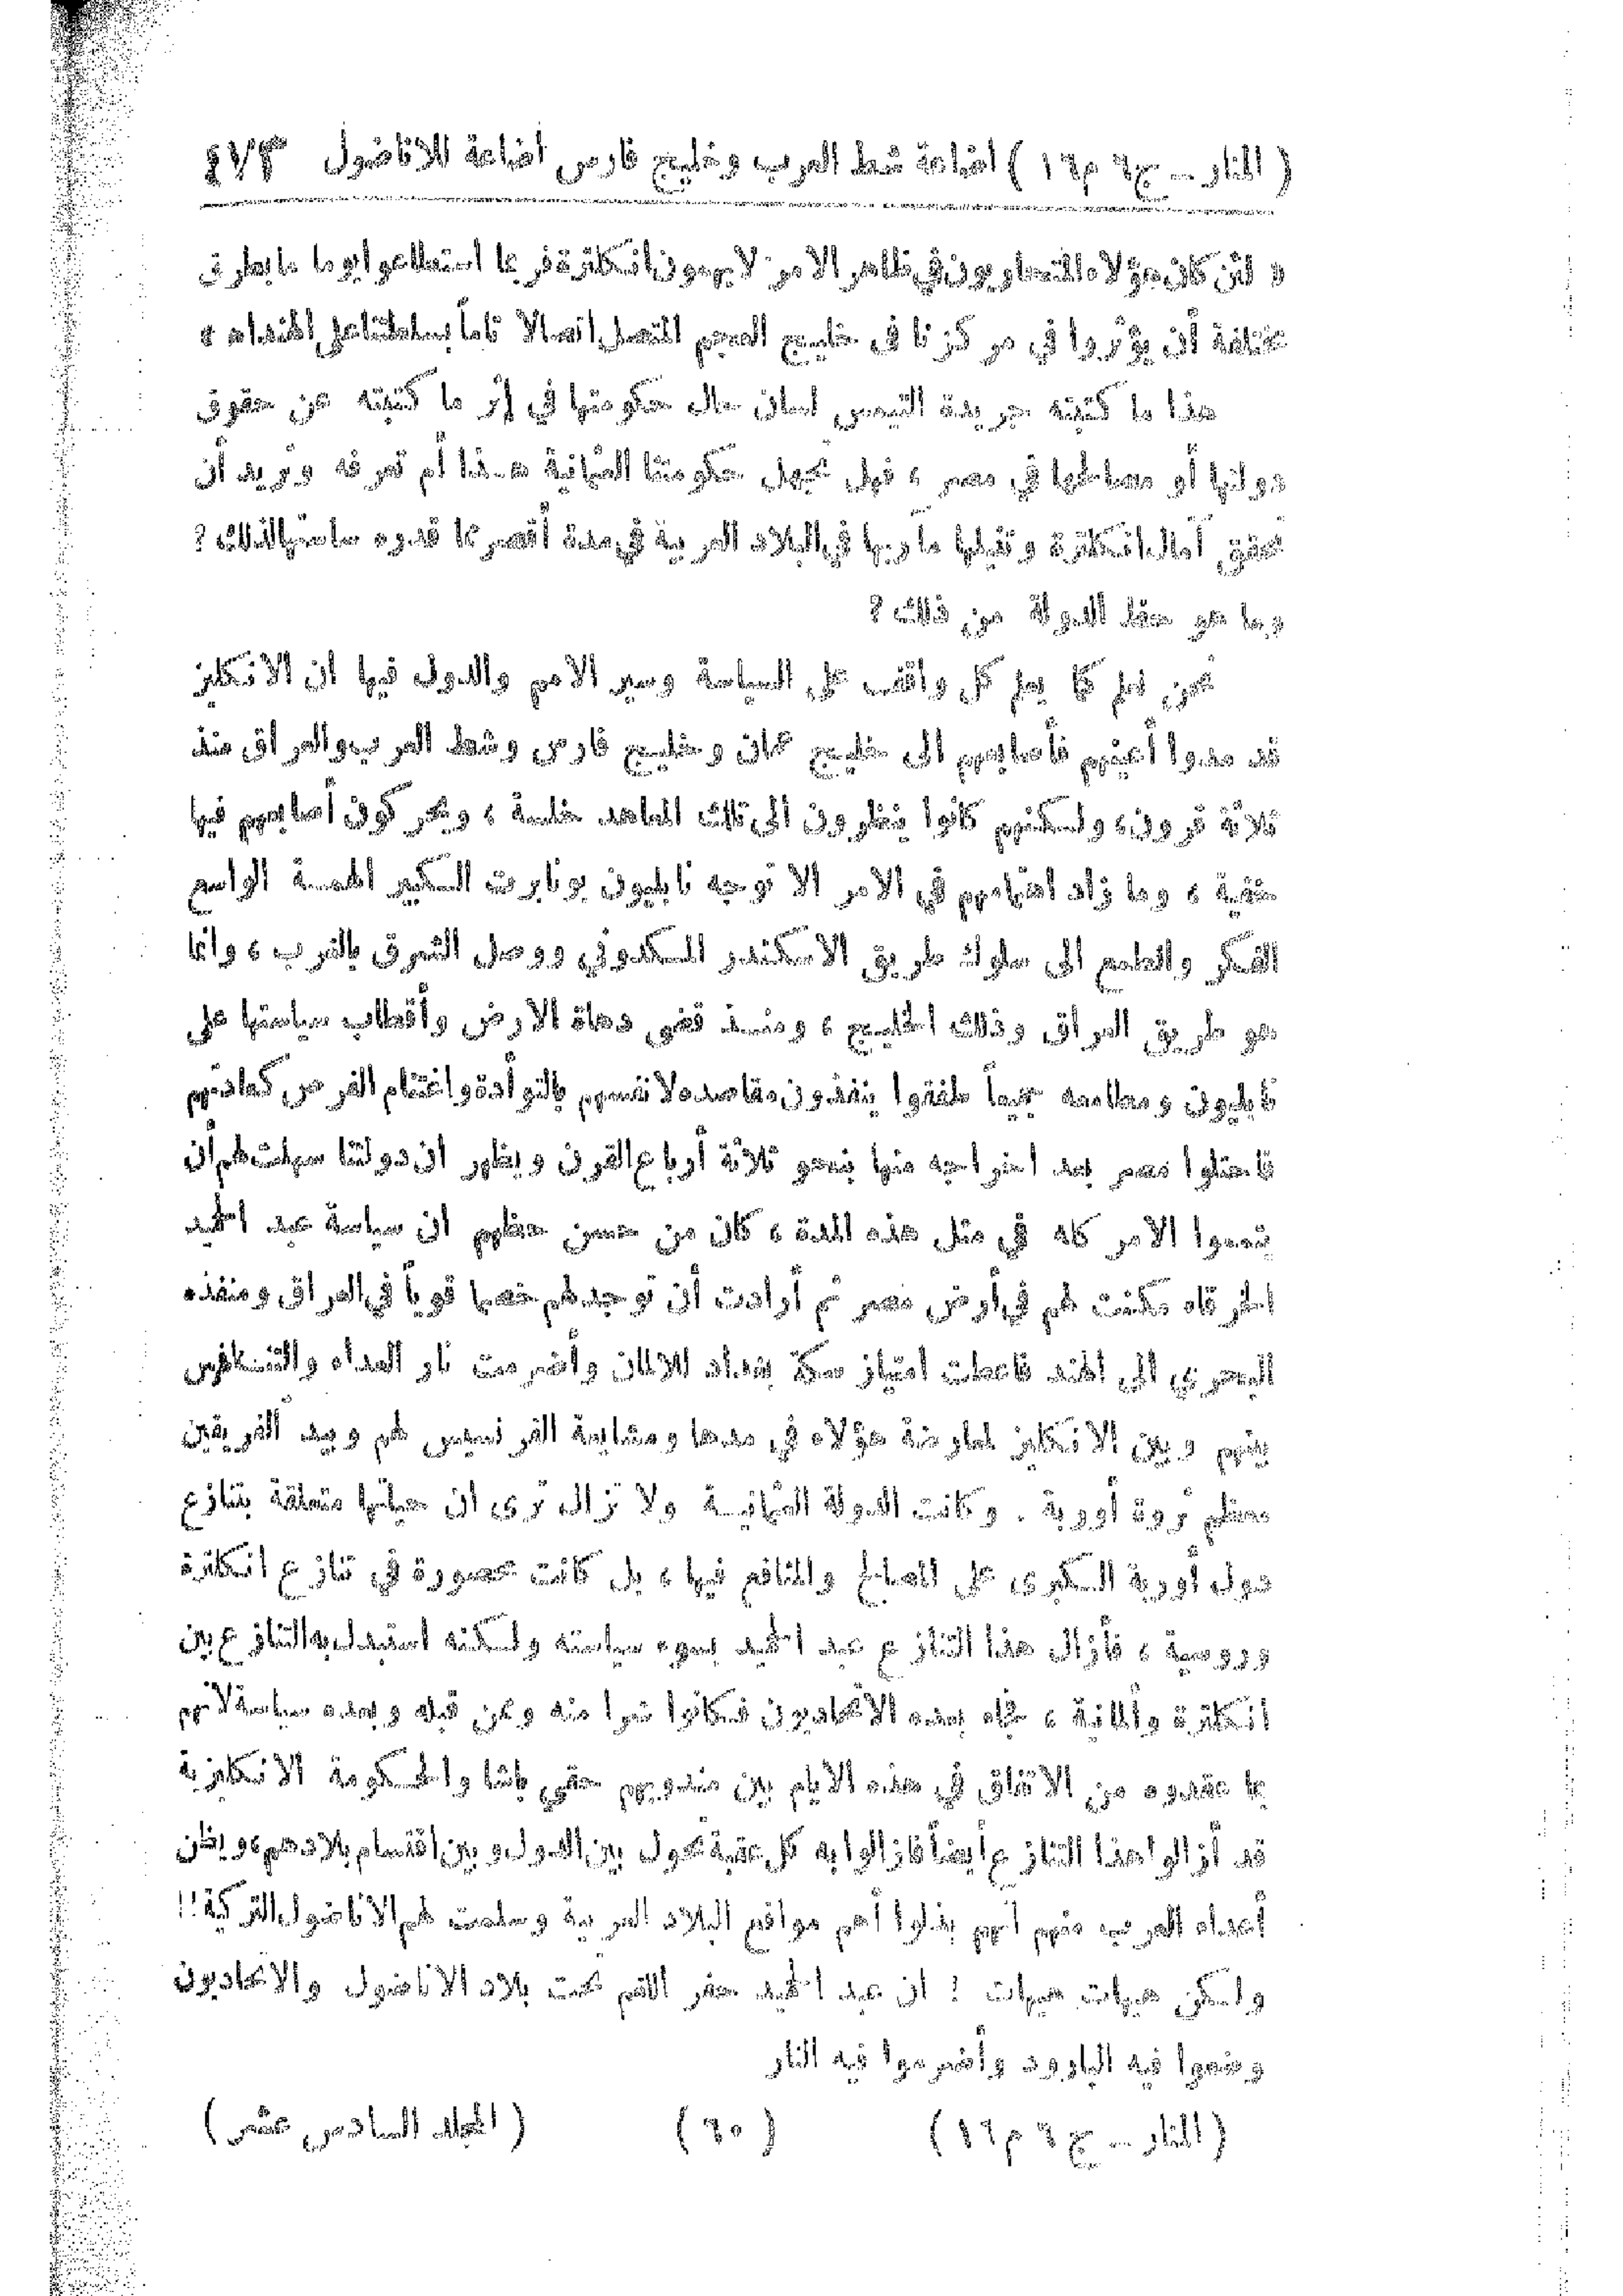 ( المنار ــ ج٦ م١٦ ) اضاعة شط العرب وخليج فارس اضاعة للاناضول ٤٧٣
« لئن كان هؤلاء المتحاربون في ظاهر الامر لا يهمون انكلترة فربما استطاعوا يوما ما بطرق
مختلفة أن يؤثروا في مركزنا في خليج العجم المتصل اتصالا تاماً بسلطتنا على الهند اه »
هذا ما كتبته جريدة التيمس لسان حال حكومتها في إثر ما كتبته عن حقوق
دولتها أو مصالحها في مصر ، فهل تجهل حكومتنا العثمانية هـذا أم تعرفه وتريد أن
تحقق آمال انكلترة وتنيلها مآربها في البلاد العربية في مدة أقصر مما قدره ساستها لذلك ؟
وما هو حظ الدولة من ذلك ؟
نحن نعلم كما يعلم كل واقف على السياسة وسير الامم والدول فيها ان الانكليز
قد مدوا أعينهم فأصابعهم الى خليج عمان وخليج فارس وشط العرب والعراق منذ
ثلاثة قرون ، ولـكنهم كانوا ينظرون الى تلك المعاهد خلسة ، ويحركون أصابعهم فيها
خفية ، وما زاد اهتمامهم في الامر الا توجه نابليون بونابرت الـكبير الهمـة الواسع
الفـكر والطمع الى سلوك طريق الاسكندر المـكدوني ووصل الشرق بالغرب ، وانما
هو طريق العراق وذلك الخليـج ، ومنـذ قضى دهاة الارض وأقطاب سياستها على
نابليون ومطامعه جميعاً طفقوا ينفذون مقاصده لانفسهم بالتوأدة واغتنام الفرص كعادتهم
فاحتلوا مصر بعد اخراجه منها بنحو ثلاثة أرباع القرن ويظهر ان دولتنا سهلت لهم أن
يتموا الامر كله في مثل هذه المدة ، كان من حسن حظهم ان سياسة عبد الحميد
الخرقاء مكنت لهم في أرض مصر ثم أرادت أن توجد لهم خصما قوياً في العراق ومنفذه
البحري الى الهند فاعطت امتياز سكة بغداد للالمان وأضرمت نار العداء والتنـافس
بينهم وبين الانكليز لمعارضة هؤلاء في مدها ومشايعة الفرنسيس لهم وبيد الفريقين
معظم ثروة أوربة . وكانت الدولة العثمانيـة ولا تزال ترى ان حياتها متعلقة بتنازع
دول أوربة الـكبرى على المصالح والمنافع فيها ، بل كانت محصورة في تنازع انكلترة
وروسية ، فأزال هذا التنازع عبد الحميد بسوء سياسته ولـكنه استبدل به التنازع بين
انكلترة وألمانية ، فجاء بعده الاتحاديون فـكانوا شرا منه وممن قبله وبعده سياسة لانهم
بما عقدوه من الاتفاق في هذه الايام بين مندوبهم حقي باشا والحـكومة الانكليزية
قد أزالوا هذا التنازع أيضاً فازالوا به كل عقبة تحول بين الدول وبين اقتسام بلادهم ، ويظن
أعداء العرب منهم انهم بذلوا أهم مواقع البلاد العربية وسلمت لهم الاناضول التركية !!
ولـكن هيهات هيهات ! ان عبد الحميد حفر اللغم تحت بلاد الاناضول والاتحاديون
وضعوا فيه البارود وأضرموا فيه النار
( المنار ــ ج ٦ م ١٦ ) ( ٦٠ ) ( المجلد السادس عشر )